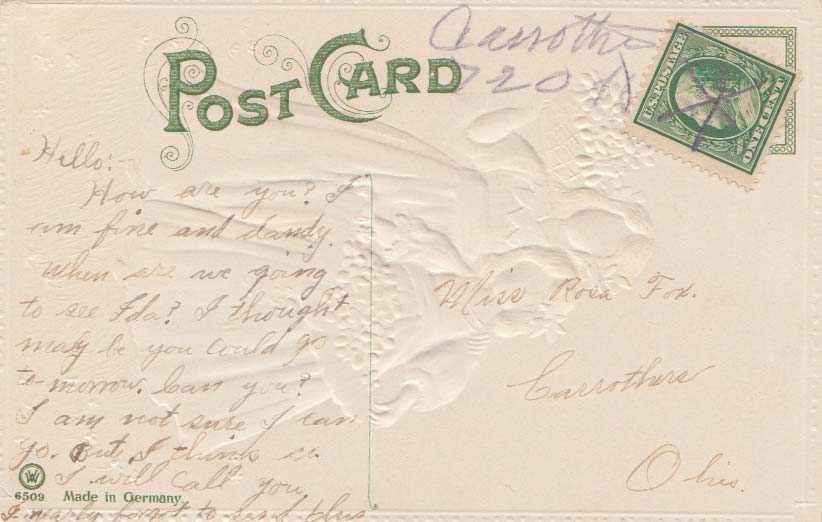 POST CARD
Carrothers
720
U.S. POSTAGE
ONE CENT
Hello:-
How are you? I
am fine and dandy.
When are we going
to see Ida? I thought
mayby be you could go
to-morrow. Can you?
I am not sure I can
go. But I think so.
I will call you.
I nearly forgot to send this
Miss Rosa Fox.
Carrothers
Ohio.
6509 Made in Germany